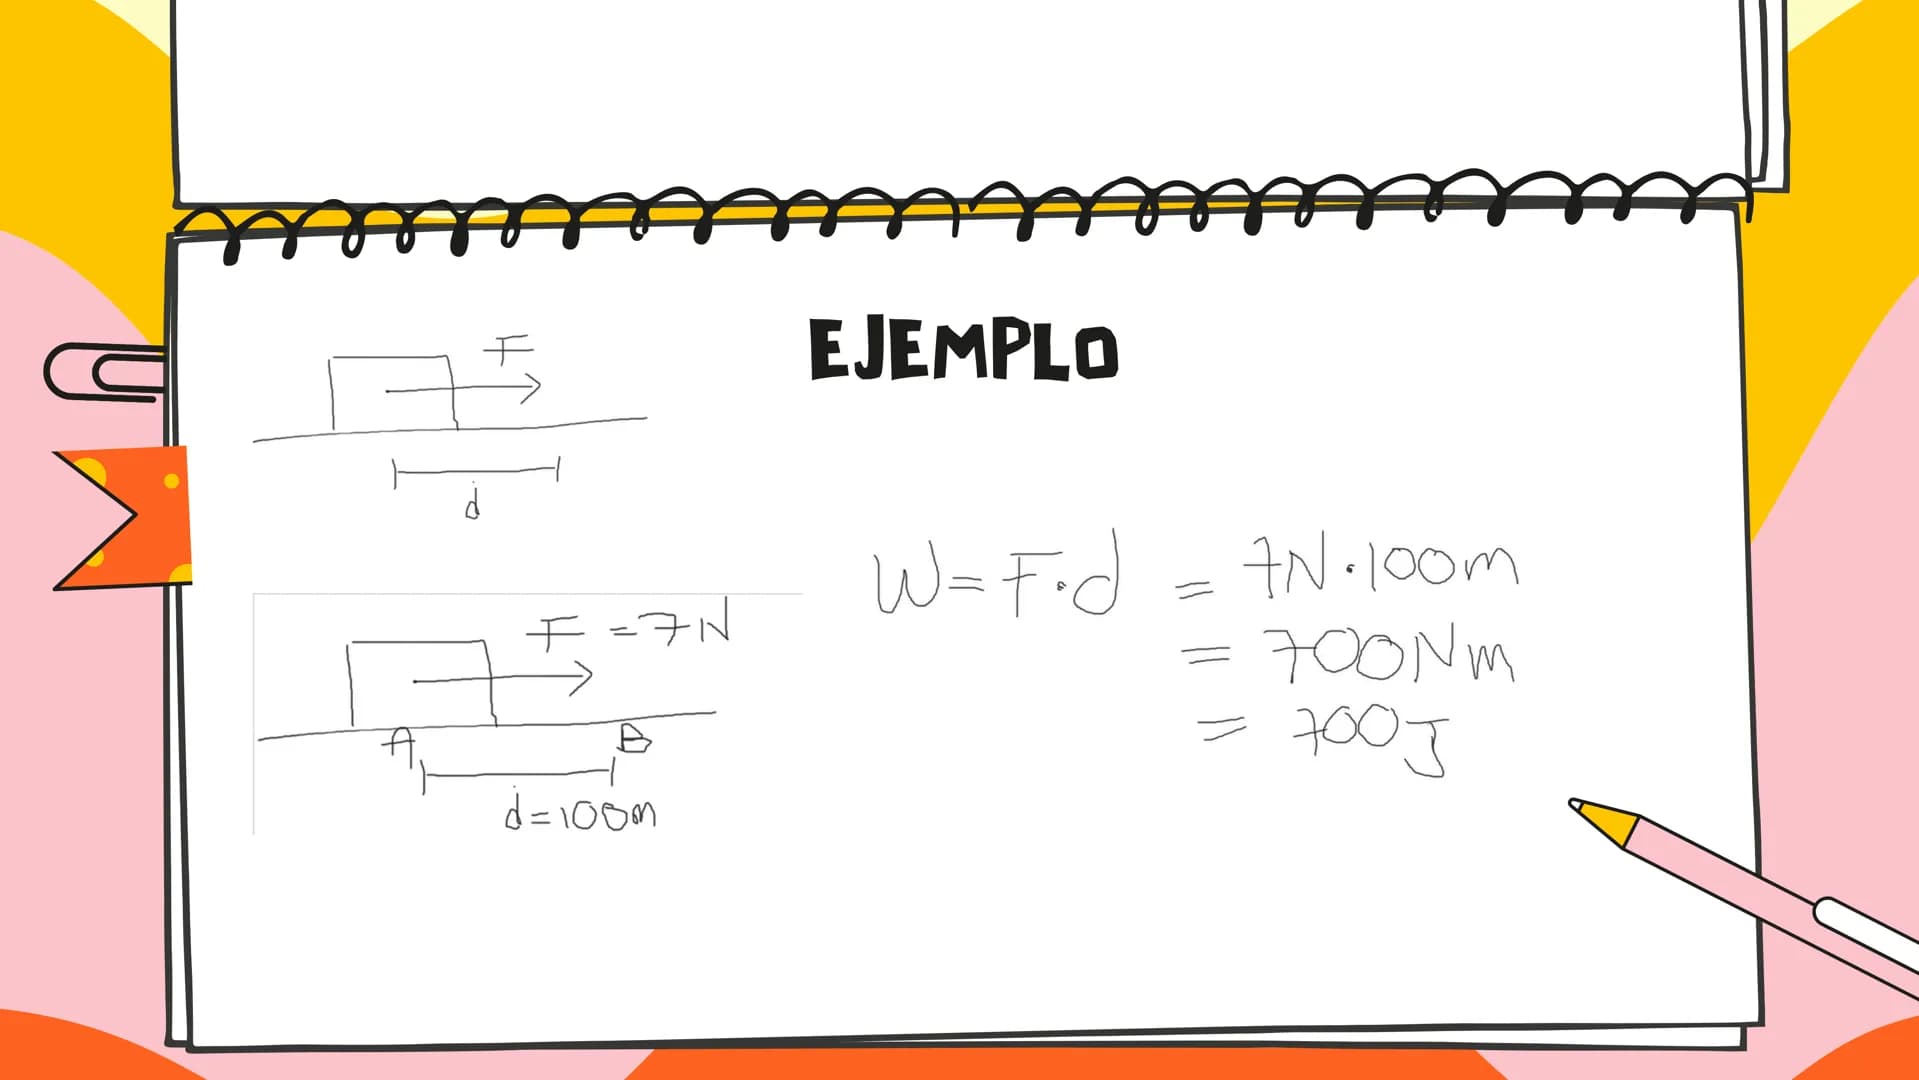 EJEMPLO
F
d
F = 7N
A B
d = 100m
W = F · d = 7N · 100m
= 700Nm
= 700J